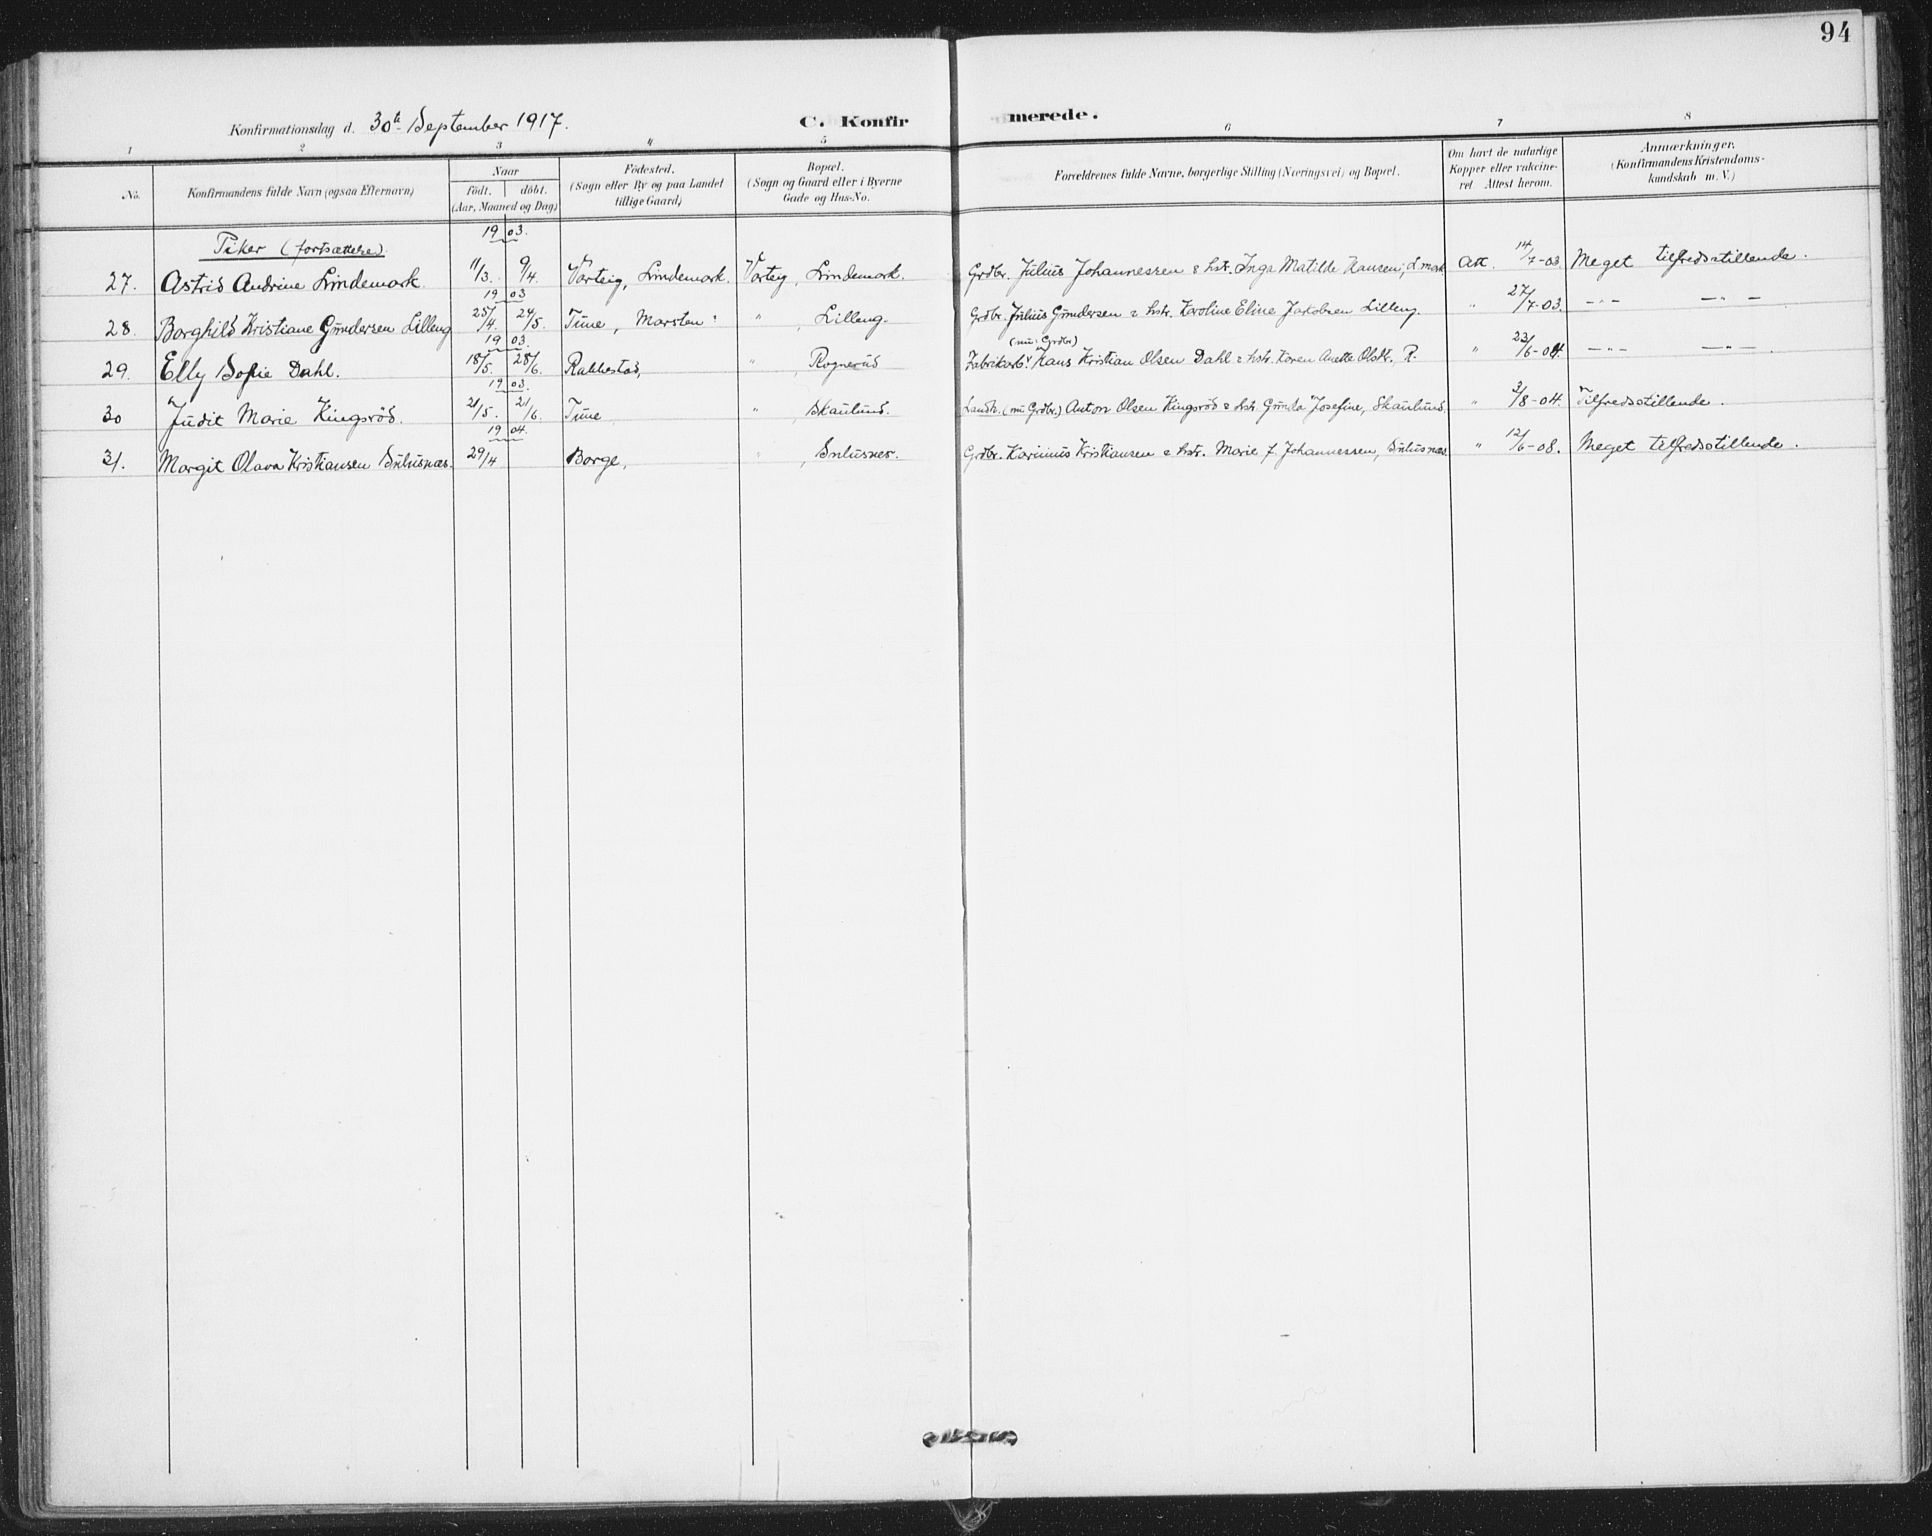 94
Konfirmationsdag d. 30te September 1917. C. Konfir merede.
1 2 3 4 5 6 7 8
No. Konfirmandens fulde Navn (ogsaa Efternavn) Naar födt. döbt. (Aar, Maaned og Dag) Födested. (Sogn eller By og paa Landet tillige Gaard) Bopæl. (Sogn og Gaard eller i Byerne Gade og Hus-No. Forældrenes fulde Navne, borgerlige Stilling (Næringsvei) og Bopæl. Om havt de naturlige Kopper eller vakcineret Attest herom. Anmærkninger. (Konfirmandens Kristendomskundskab m. V.)
Piker (fortsættelse) 1903.
27. Astrid Andrine Lindemark. 11/3. 9/4. Varteig, Lindemark. Varteig, Lindemark. Grdbr. Julius Johannessen & hstr. Inga Matilde Hansen, L.mark Att. 14/7-03 Meget tilfredsstillende.
1903
28. Borghild Kristiane Gundersen Lilleng 25/4. 24/5. Tune, Marsten: " , Lilleng. Grdbr. Julius Gundersen & hstr. Karoline Eline Jakobsen Lilleng. " 27/7-03. —"— —"—
1903.
29. Elly Sofie Dahl. 18/5. 28/6. Rakkestad, " , Rognerud Fabrikarb. (nu: Grdbr) Hans Kristian Olsen Dahl & hstr. Karen Anette Olsdt., R. " 23/6-04. —"— —"—.
1903.
30 Judit Marie Kingsröd. 21/5. 21/6. Tune " , Skaulund. Landh. (nu Grdbr.) Anton Olsen Kingsröd & hstr. Gunda Josefine, Skaulund. " 3/8-04. Tilfredsstillende.
1904.
31. Margit Olava Kristiansen Sulusnæs. 29/4 Borge, " , Sulusnes. Grdbr. Karinius Kristiansen & hstr. Marie f. Johannessen, Sulusnæs. " 12/6-08. Meget tilfredsstillende.